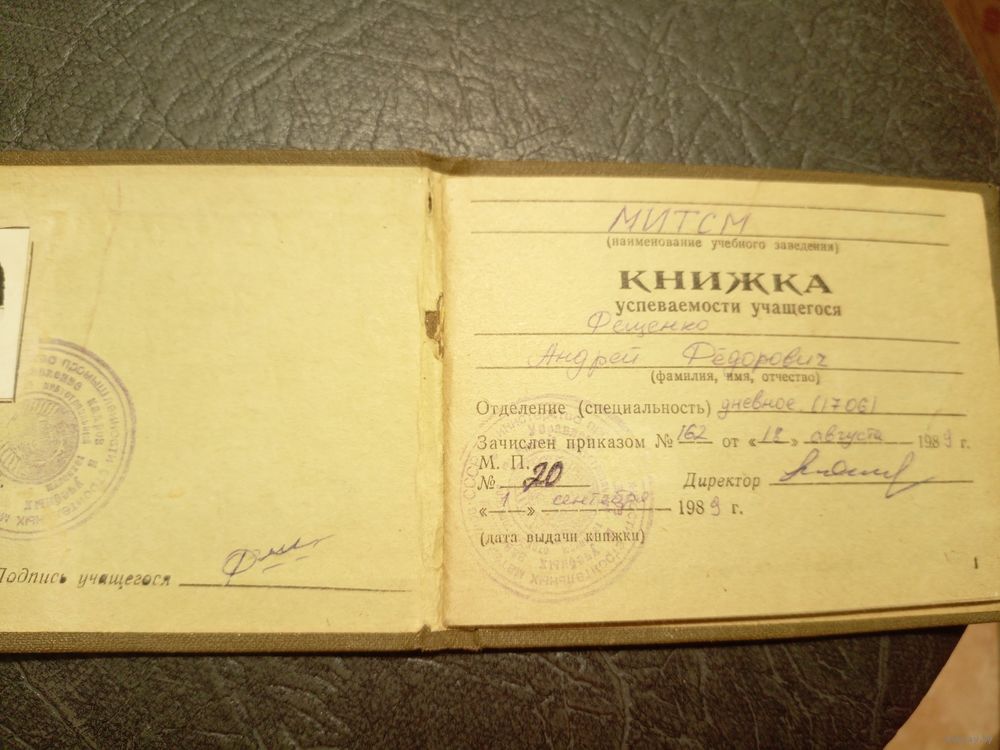 Подпись учащегося
МИТСМ
(наименование учебного заведения)
КНИЖКА
успеваемости учащегося
Фещенко
Андрей Фёдорович
(фамилия, имя, отчество)
Отделение (специальность) дневное (1706)
Зачислен приказом № 162 от «18» августа 1989 г.
М. П.
№ 20
Директор
«1» сентября 1989 г.
(дата выдачи книжки)
1